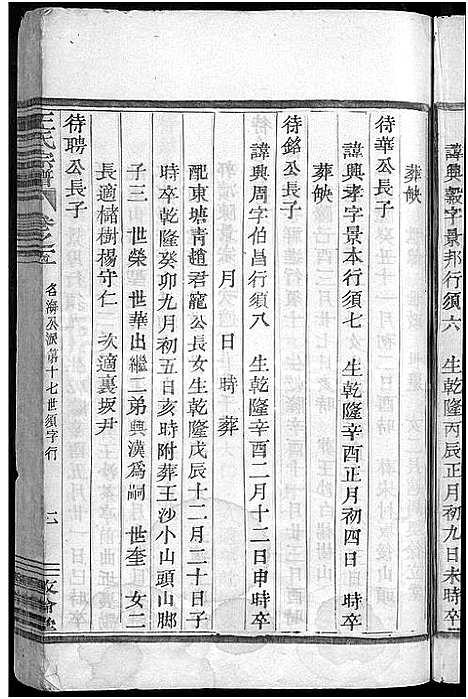 諱興穀字景邦行須六　生乾隆丙辰正月初九日未時卒
葬缺
待華公長子
諱興孝字景本行須七　生乾隆辛酉正月初四日　時卒
葬缺
待銘公長子
諱興周字伯昌行須八　生乾隆辛酉二月十二日申時卒
月　日　時　葬
配東塘青趙君寵公長女生乾隆戊辰十二月二十日子
時卒乾隆癸卯九月初五日亥時附葬王沙小山頭山脚
子三　世榮　世華出繼二弟興漢爲嗣　世奎　女二
長適儲樹楊守仁　次適裏坂尹
待聘公長子
王氏宗譜　卷之　名海公派第十七世須字行